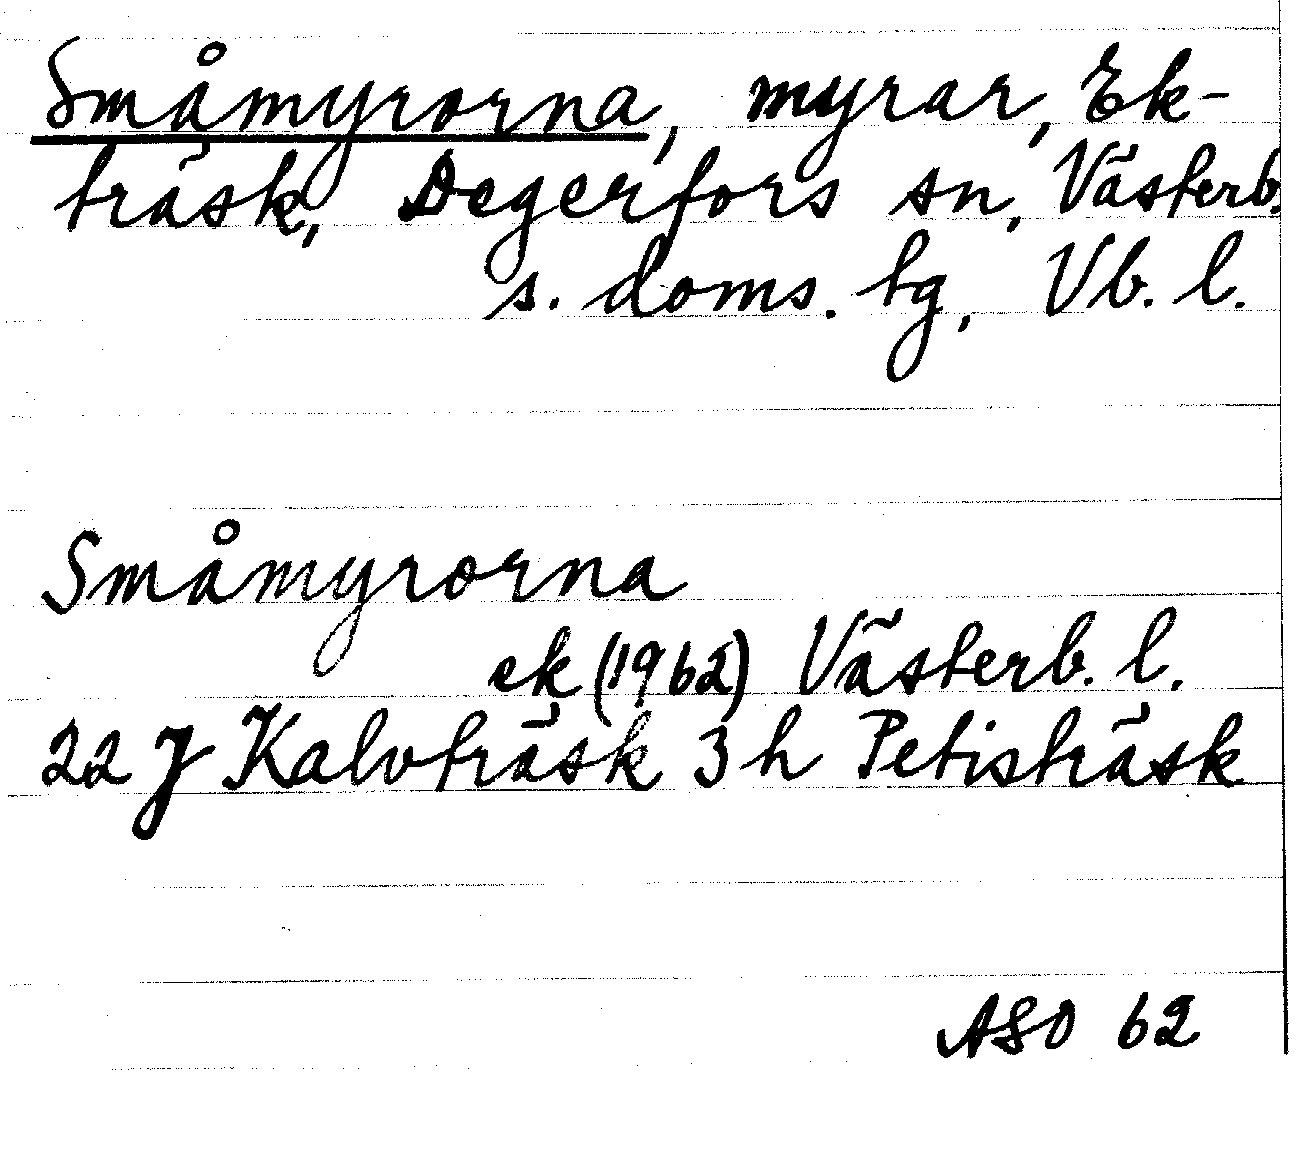 Småmyrorna, myrar, Ek-
träsk, Degerfors sn, Västerb.
s. doms. tg, Vb. l.
Småmyrorna
ek (1962) Västerb. l.
22 J Kalvträsk 3 h Petisträsk
ASO 62